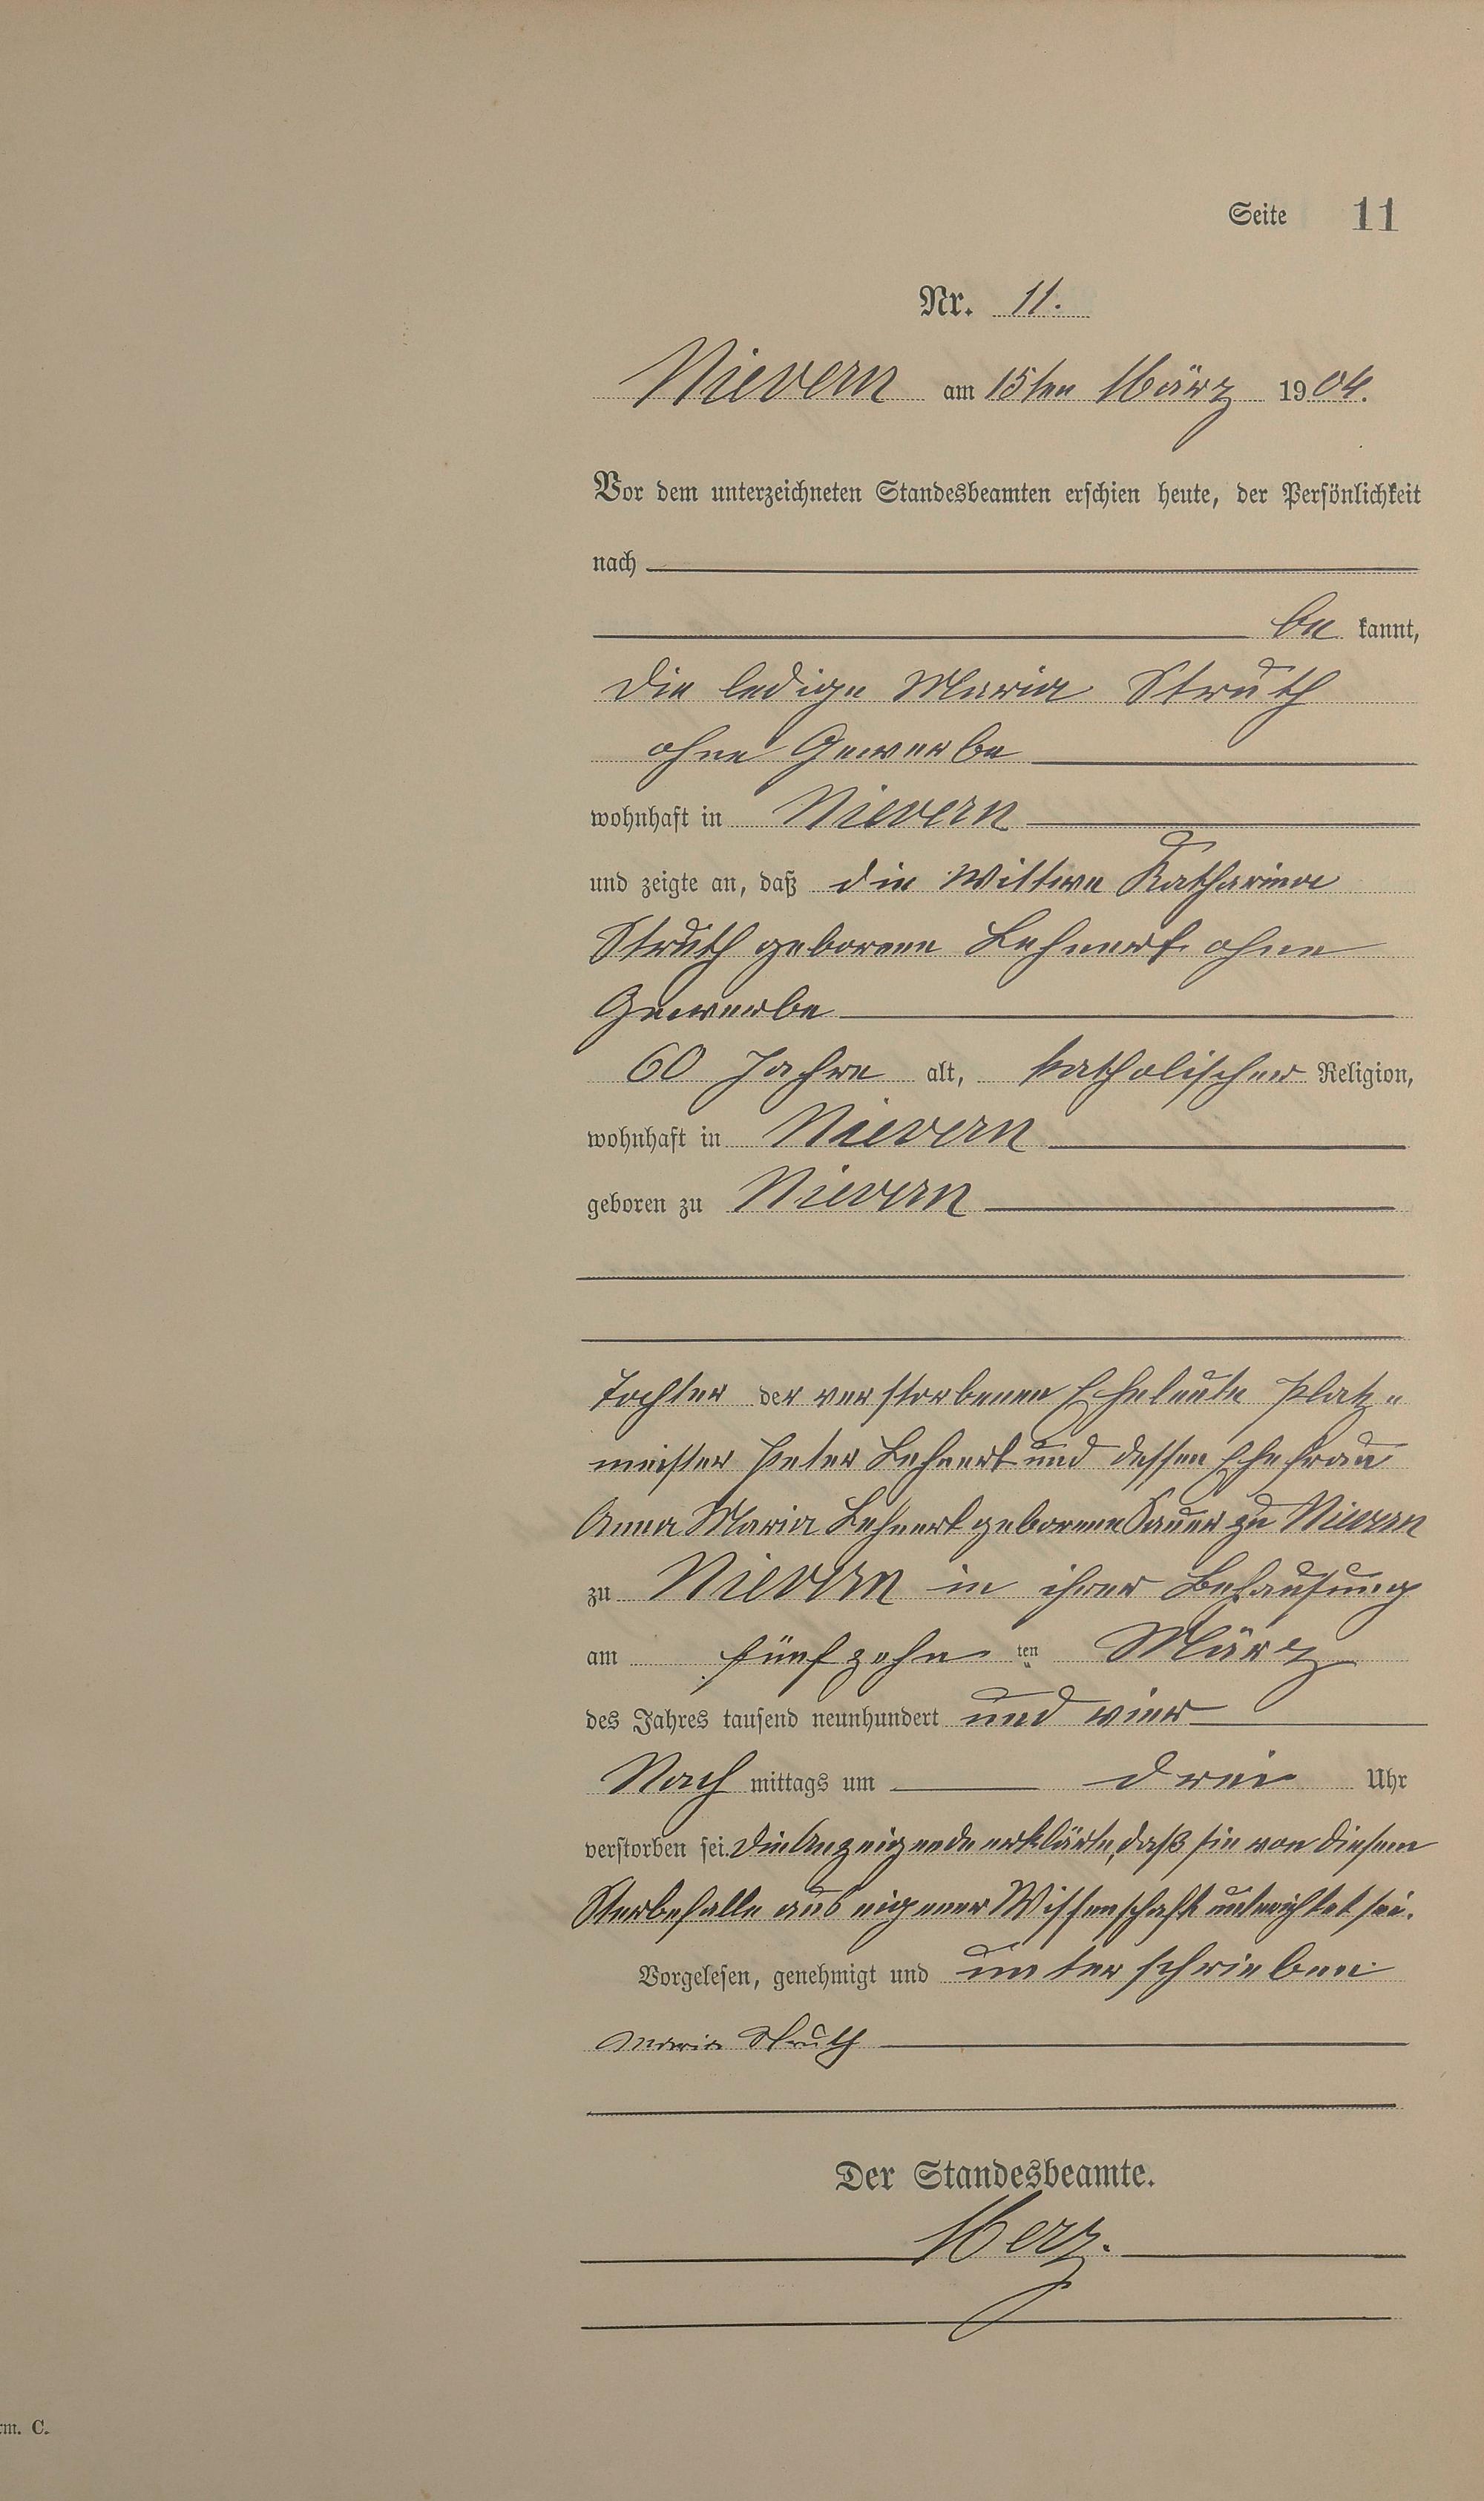 Seite 11
Nr. 11.
Nievern am 15ten März 1904.
Vor dem unterzeichneten Standesbeamten erschien heute, der Persönlichkeit
nach
be kannt,
die ledige Maria Struth
ohne Gewerbe
wohnhaft in Nievern
und zeigte an, daß die Wittwe Katharina
Struth geborene Lehnert ohne
Gewerbe
60 Jahre alt, katholischer Religion,
wohnhaft in Nievern
geboren zu Nievern
Tochter der verstorbenen Eheleute Platz„
meister Peter Lehnert und dessen Ehefrau
Anna Maria Lehnert geborene Sauer zu Nievern
zu Nievern in ihrer Behausung
am fünfzehn ten März
des Jahres tausend neunhundert und vier
Nach mittags um drei Uhr
verstorben sei. Die Anzeigende erklärte, daß sie von diesem
Sterbefalle aus eigener Wissenschaft unterrichtet sei.
Vorgelesen, genehmigt und unterschrieben
Maria Struth
Der Standesbeamte.
Merz.
rm. C.